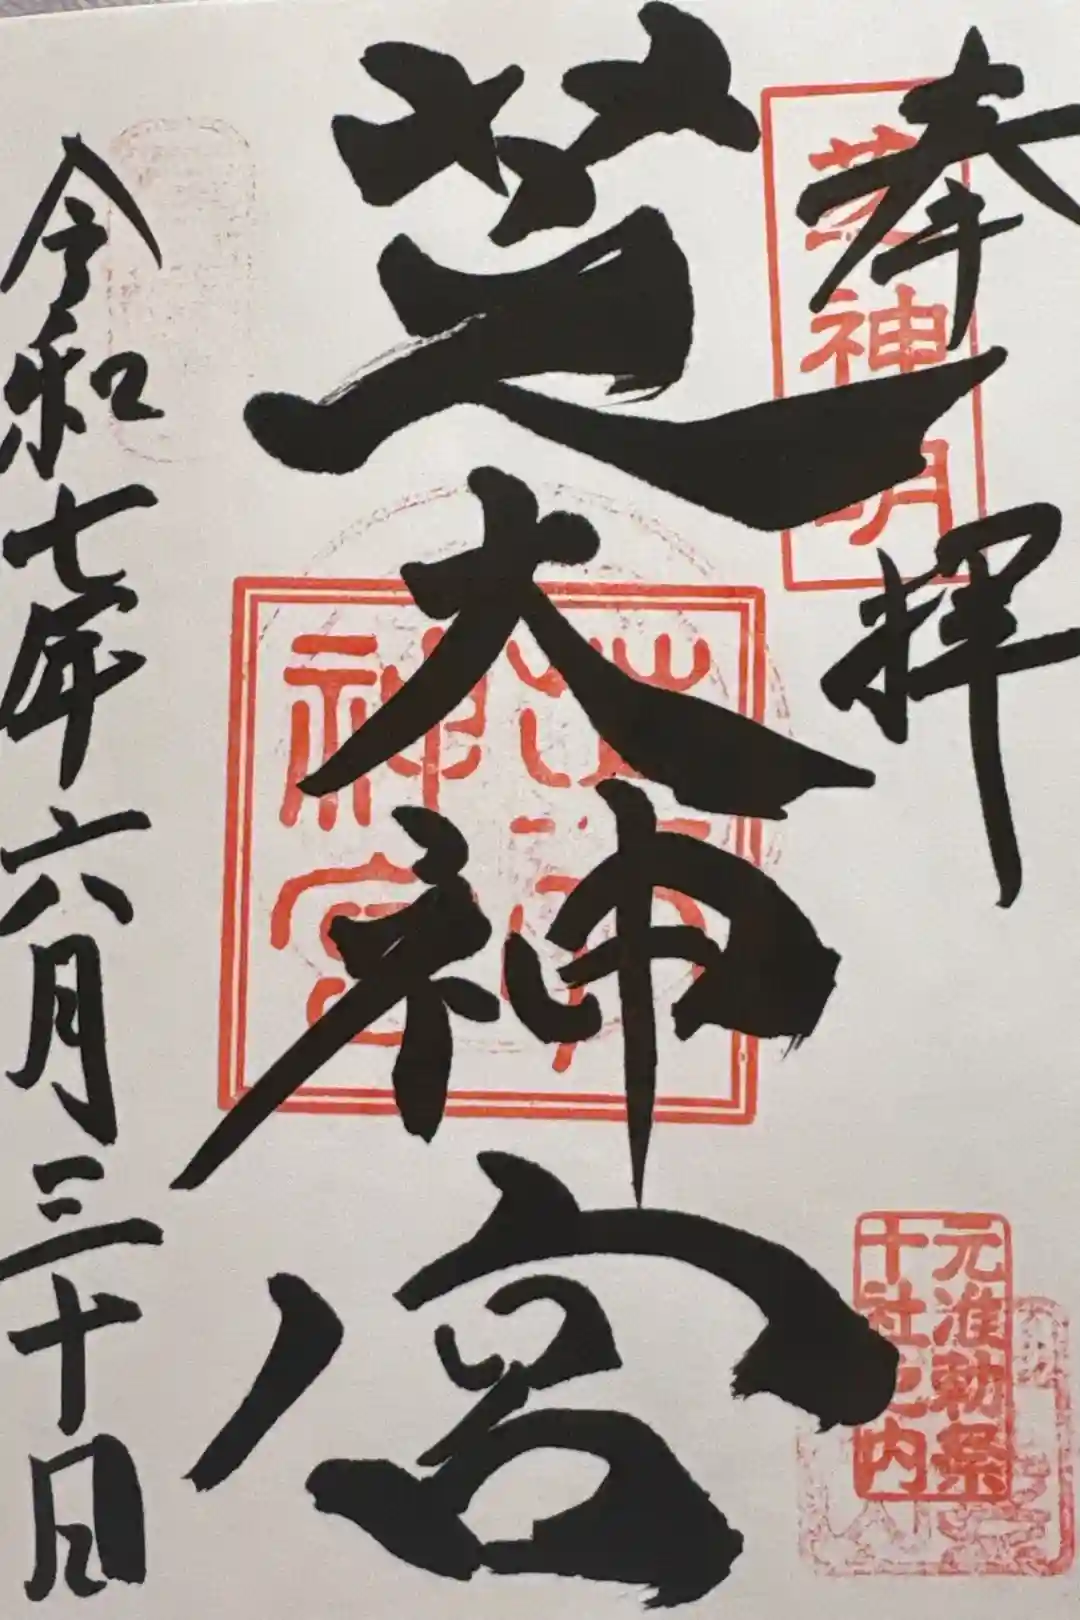 奉拝
芝神明
芝大神宮
元准勅祭
十社之内
令和七年六月三十日